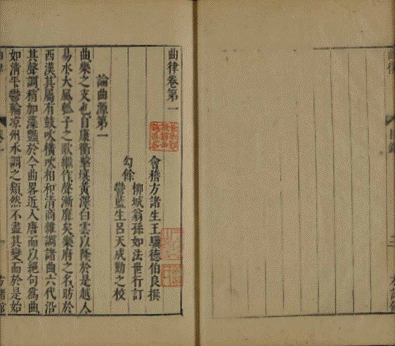 曲律卷第一
會稽方諸生王驥德伯良撰
柳城翁孫如法世行訂
勾餘
鬱藍生呂天成勤之校
論曲源第一
曲樂之支也自康衢擊壤黃澤白雲以降於是越人
易水大風瓠子之歌繼作聲漸靡矣樂府之名昉於
西漢其屬有鼓吹橫吹相和清商雜調諸曲六代沿
其聲調稍加藻艷於今曲略近入唐而以絕句為曲
如清平鬱輪涼州水調之類然不盡其變而於是始